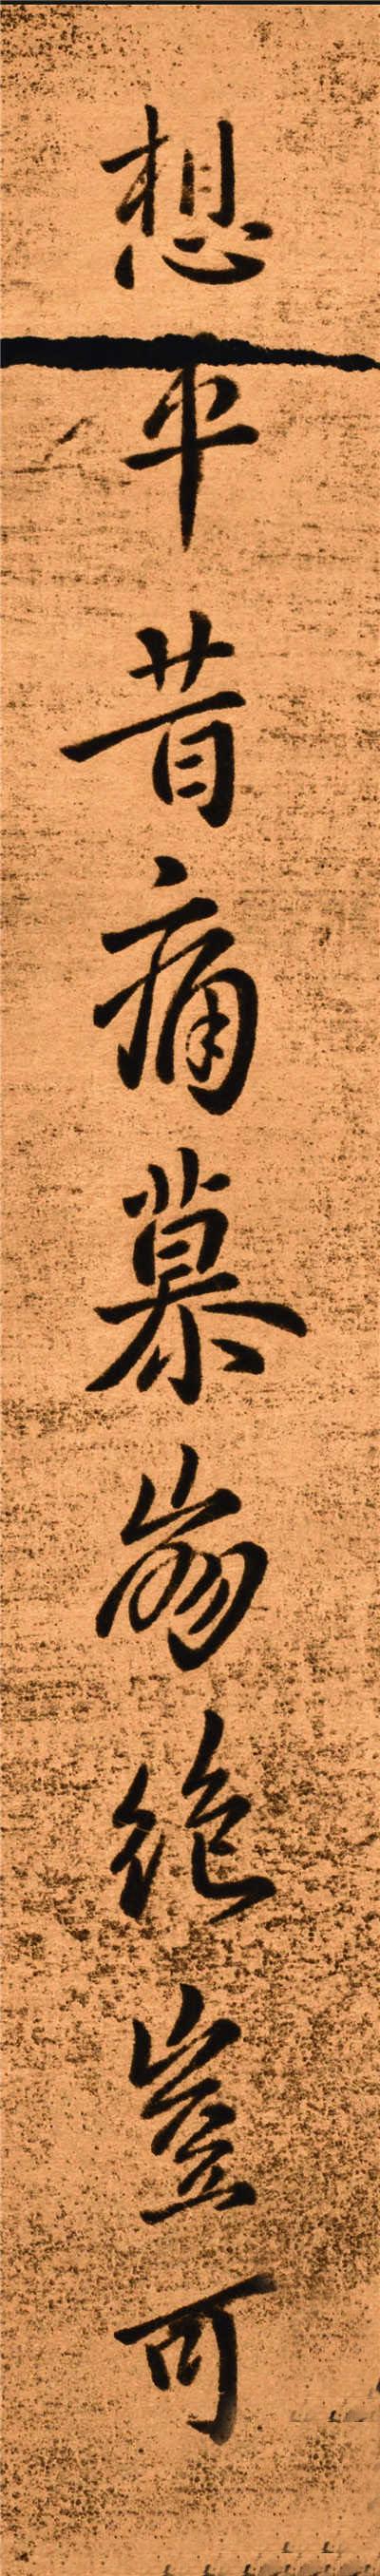 想平昔痛慕崩絶豈可